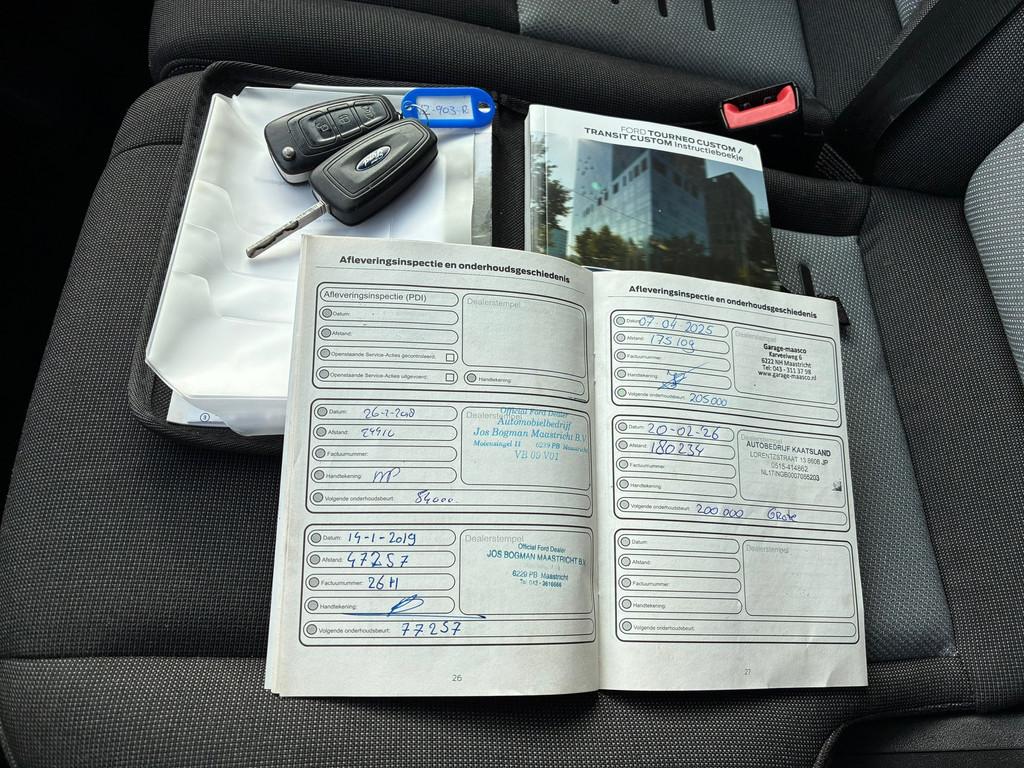 Z-903-R
FORD TOURNEO CUSTOM /
TRANSIT CUSTOM Instructieboekje
Ford
Afleveringsinspectie en onderhoudsgeschiedenis
Afleveringsinspectie (PDI)
Datum:
Afstand:
Openstaande Service-Acties gecontroleerd:
Openstaande Service-Acties uitgevoerd:
Dealerstempel
Handtekening:
Datum: 26-2-2018
Afstand:
Factuurnummer:
Handtekening:
Volgende onderhoudsbeurt: 54000.
Dealerstempel
Official Ford Dealer
Automobielbedrijf
Jos Bogman Maastricht B.V.
Molensingel 11 6229 PB Maastricht
VB 09 V01
Datum: 14-1-2019
Afstand: 47257
Factuurnummer: 26H
Handtekening:
Volgende onderhoudsbeurt: 77257
Dealerstempel
Official Ford Dealer
JOS BOGMAN MAASTRICHT B.V.
6229 PB Maastricht
Tel. 043 - 3616666
26
Afleveringsinspectie en onderhoudsgeschiedenis
Datum: 07-04-2025
Afstand: 175109
Factuurnummer:
Handtekening:
Volgende onderhoudsbeurt: 205000
Dealerstempel
Garage-maasco
Karveelweg 6
6222 NH Maastricht
Tel: 043 - 311 37 98
www.garage-maasco.nl
Datum: 20-02-26
Afstand: 180234
Factuurnummer:
Handtekening:
Volgende onderhoudsbeurt: 200.000 Grote
Dealerstempel
AUTOBEDRIJF KAATSLAND
LORENTZSTRAAT 13 8606 JP
0515-414862
NL17INGB0007055203
Datum:
Afstand:
Factuurnummer:
Handtekening:
Volgende onderhoudsbeurt:
Dealerstempel
27